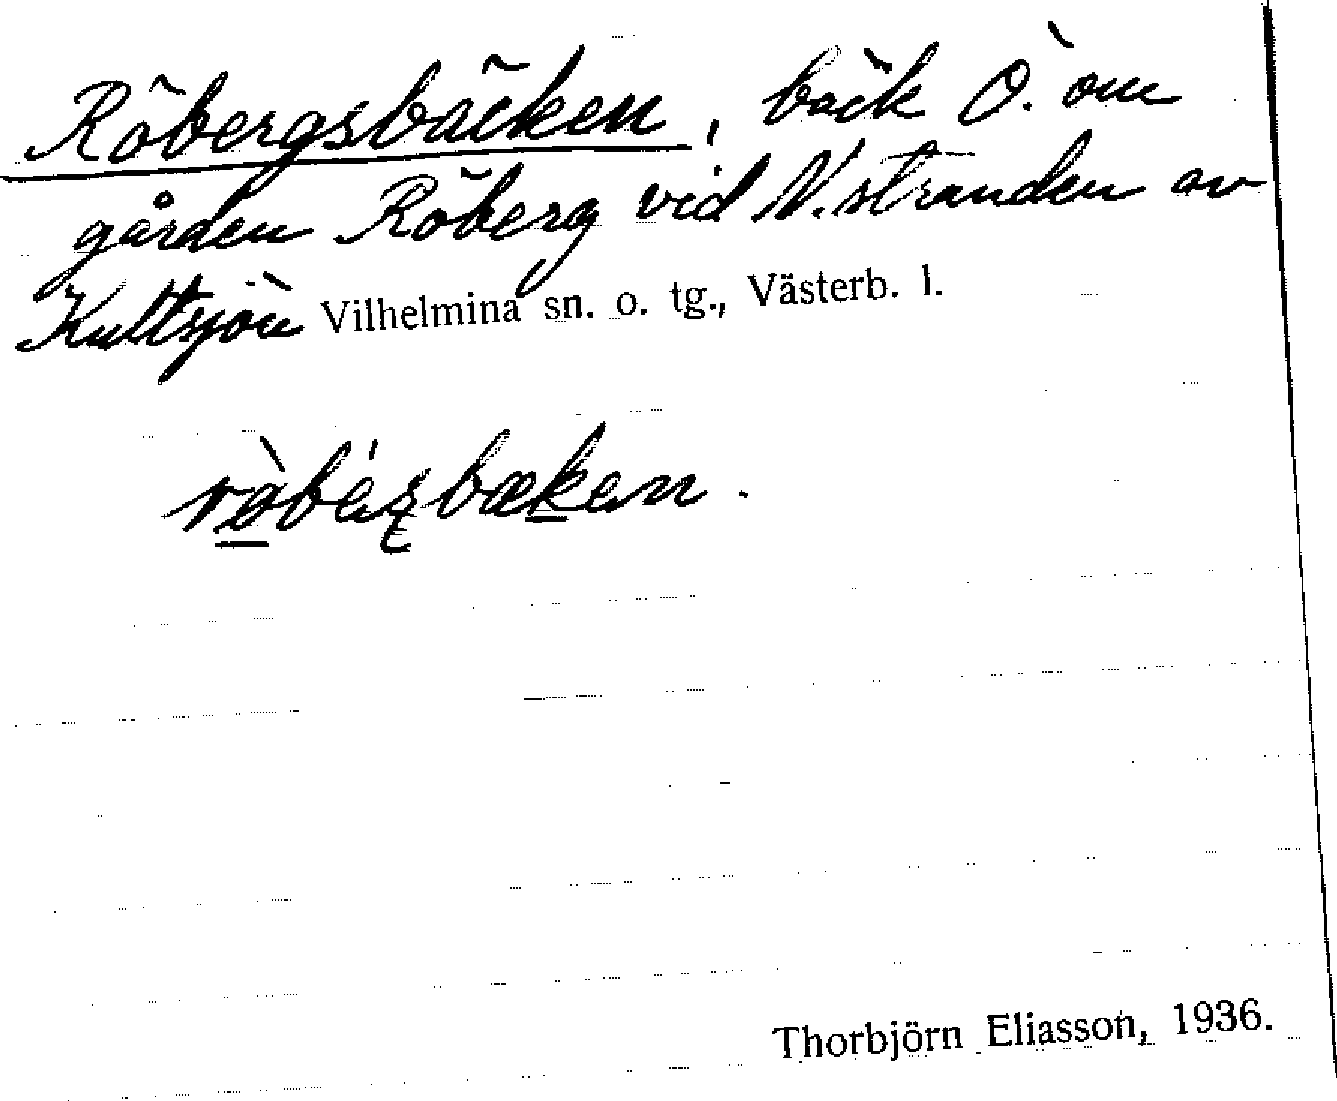 Röbergsbäcken, bäck Ö. om
gården Röberg vid N. stranden av
Kultsjön Vilhelmina sn. o. tg., Västerb. l.
Thorbjörn Eliasson, 1936.